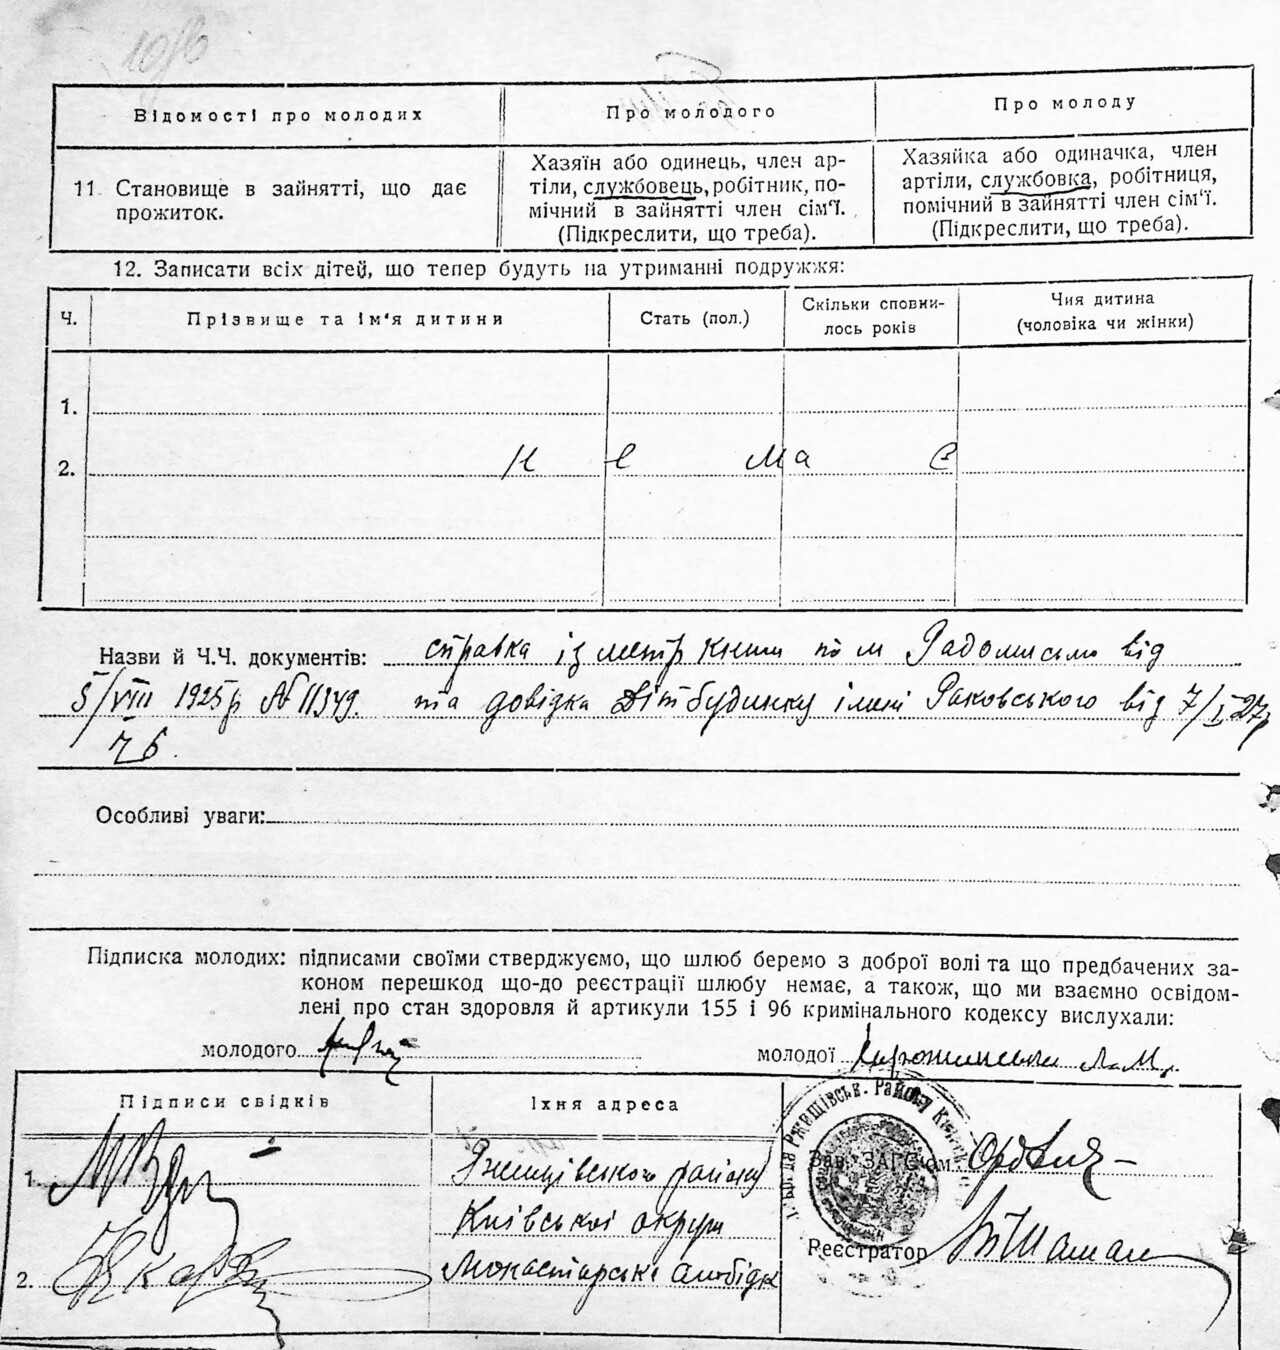 Відомості про молодих
Про молодого
Про молоду
11. Становище в зайнятті, що дає
прожиток.
Хазяїн або одинець, член ар-
тіли, службовець, робітник, по-
мічний в зайнятті член сім'ї.
(Підкреслити, що треба).
Хазяйка або одиначка, член
артіли, службовка, робітниця,
помічний в зайнятті член сім'ї.
(Підкреслити, що треба).
12. Записати всіх дітей, що тепер будуть на утриманні подружжя:
Ч.
Прізвище та ім'я дитини
Стать (пол.)
Скільки сповни-
лось років
Чия дитина
(чоловіка чи жінки)
1.
2. Н е м а є
Назви й Ч.Ч. документів: справка із метр книги по м Радомислю від
5/VIII 1925р № 11349. та довідка Дітбудинку імені Раковського від 7/I 27р
ч 6.
Особливі уваги:
Підписка молодих: підписами своїми стверджуємо, що шлюб беремо з доброї волі та що предбачених за-
коном перешкод що-до реєстрації шлюбу немає, а також, що ми взаємно освідом-
лені про стан здоровля й артикули 155 і 96 кримінального кодексу вислухали:
молодого
молодої
Підписи свідків
Їхня адреса
1.
Ржищівського району
Київської округи
2.
Монастирська слобідка
Ржищівськ. Району
Зав. ЗАГС'ом:
Реєстратор